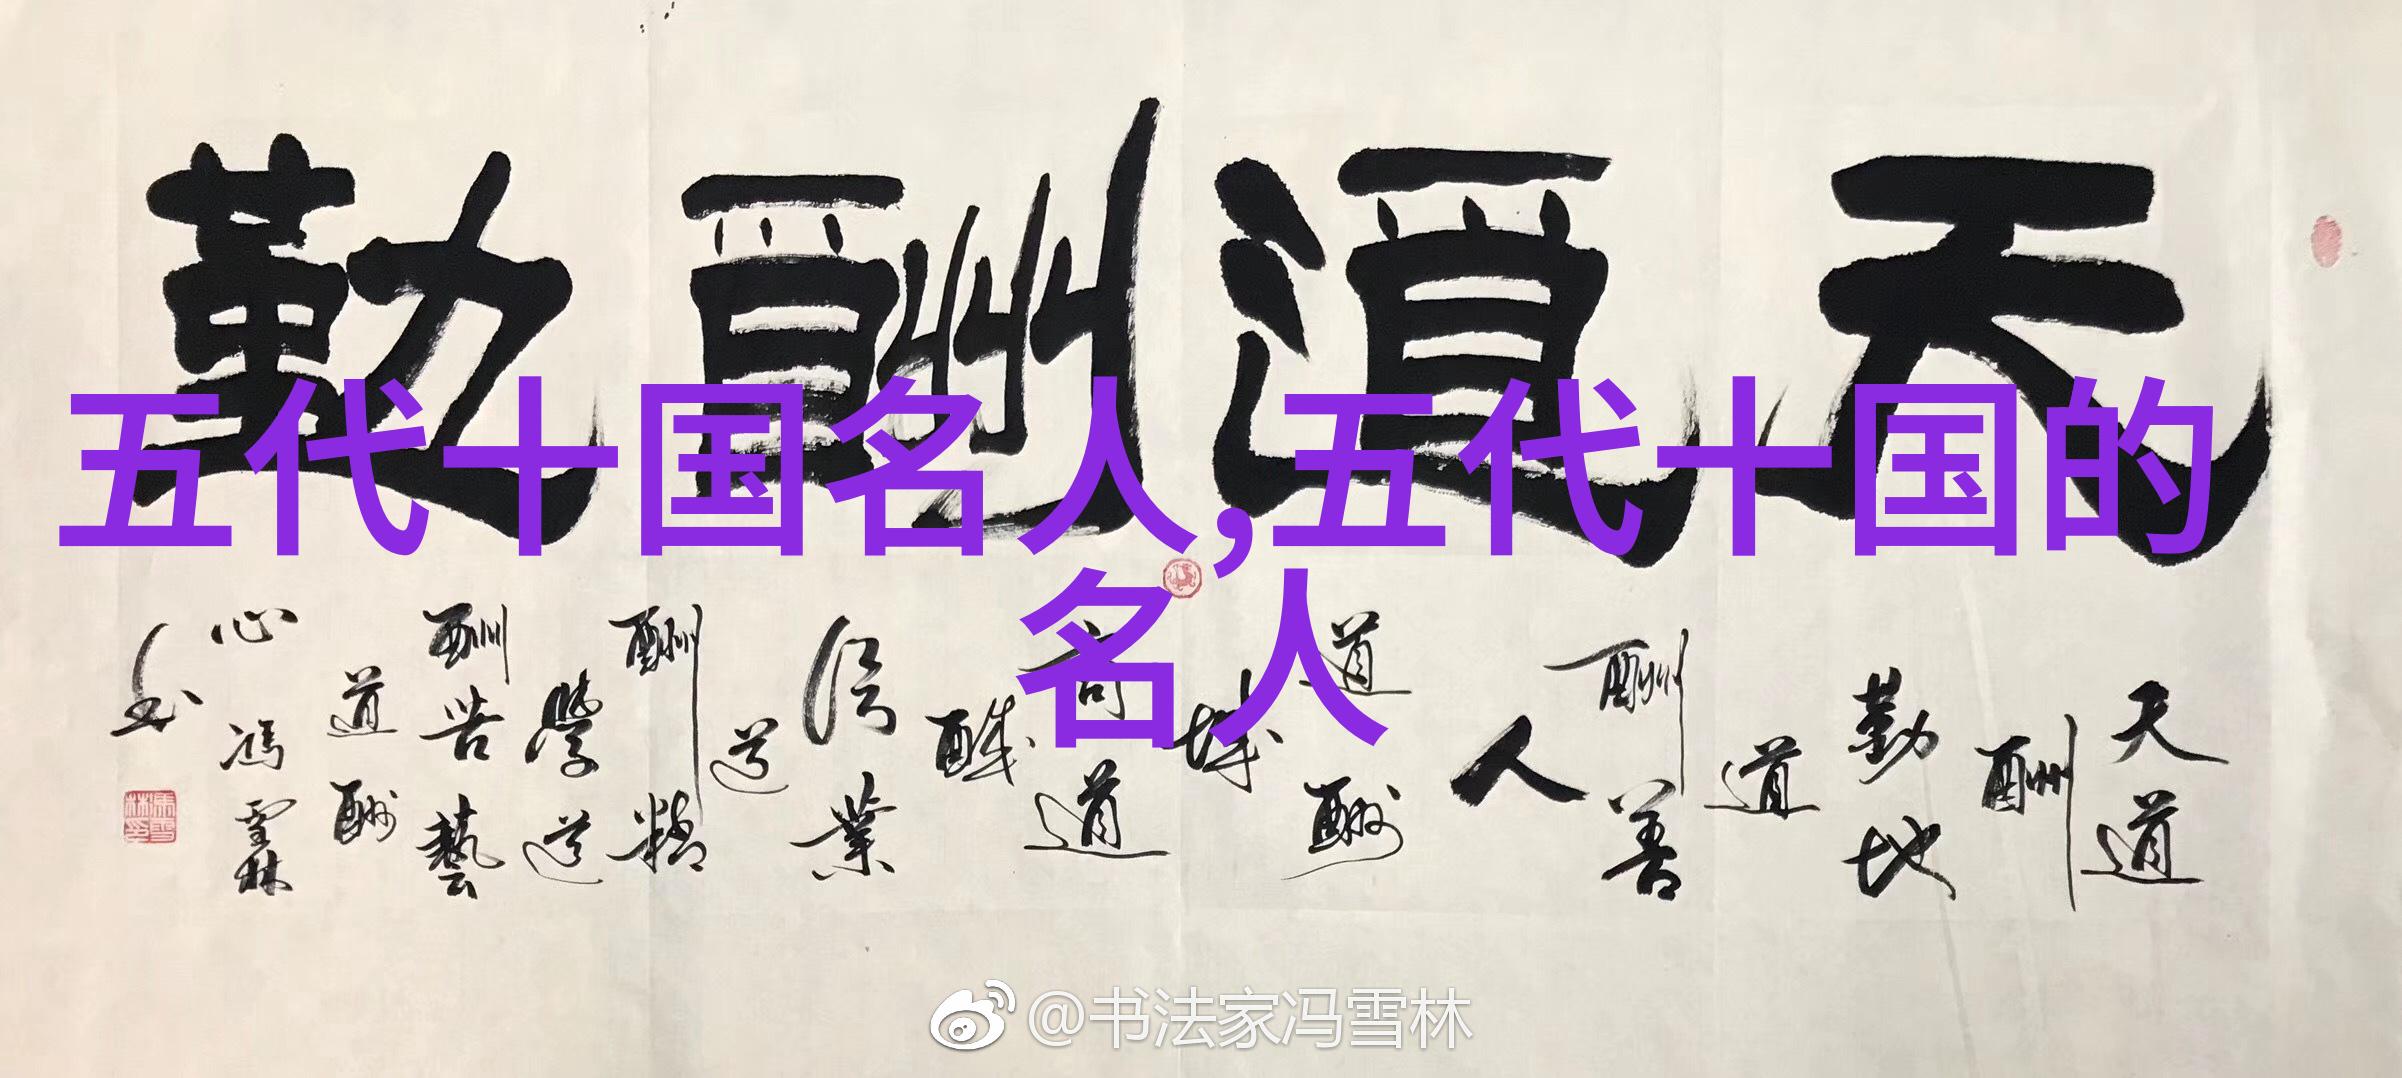 天道酬勤
五代十国名人,五代十国的
名人
天道
酬
勤地
道
酬善
人
道酬
诚
商道
酬
信業
道
酬精
學道
酬苦藝
道酬
心馮雪林
书
@书法家冯雪林